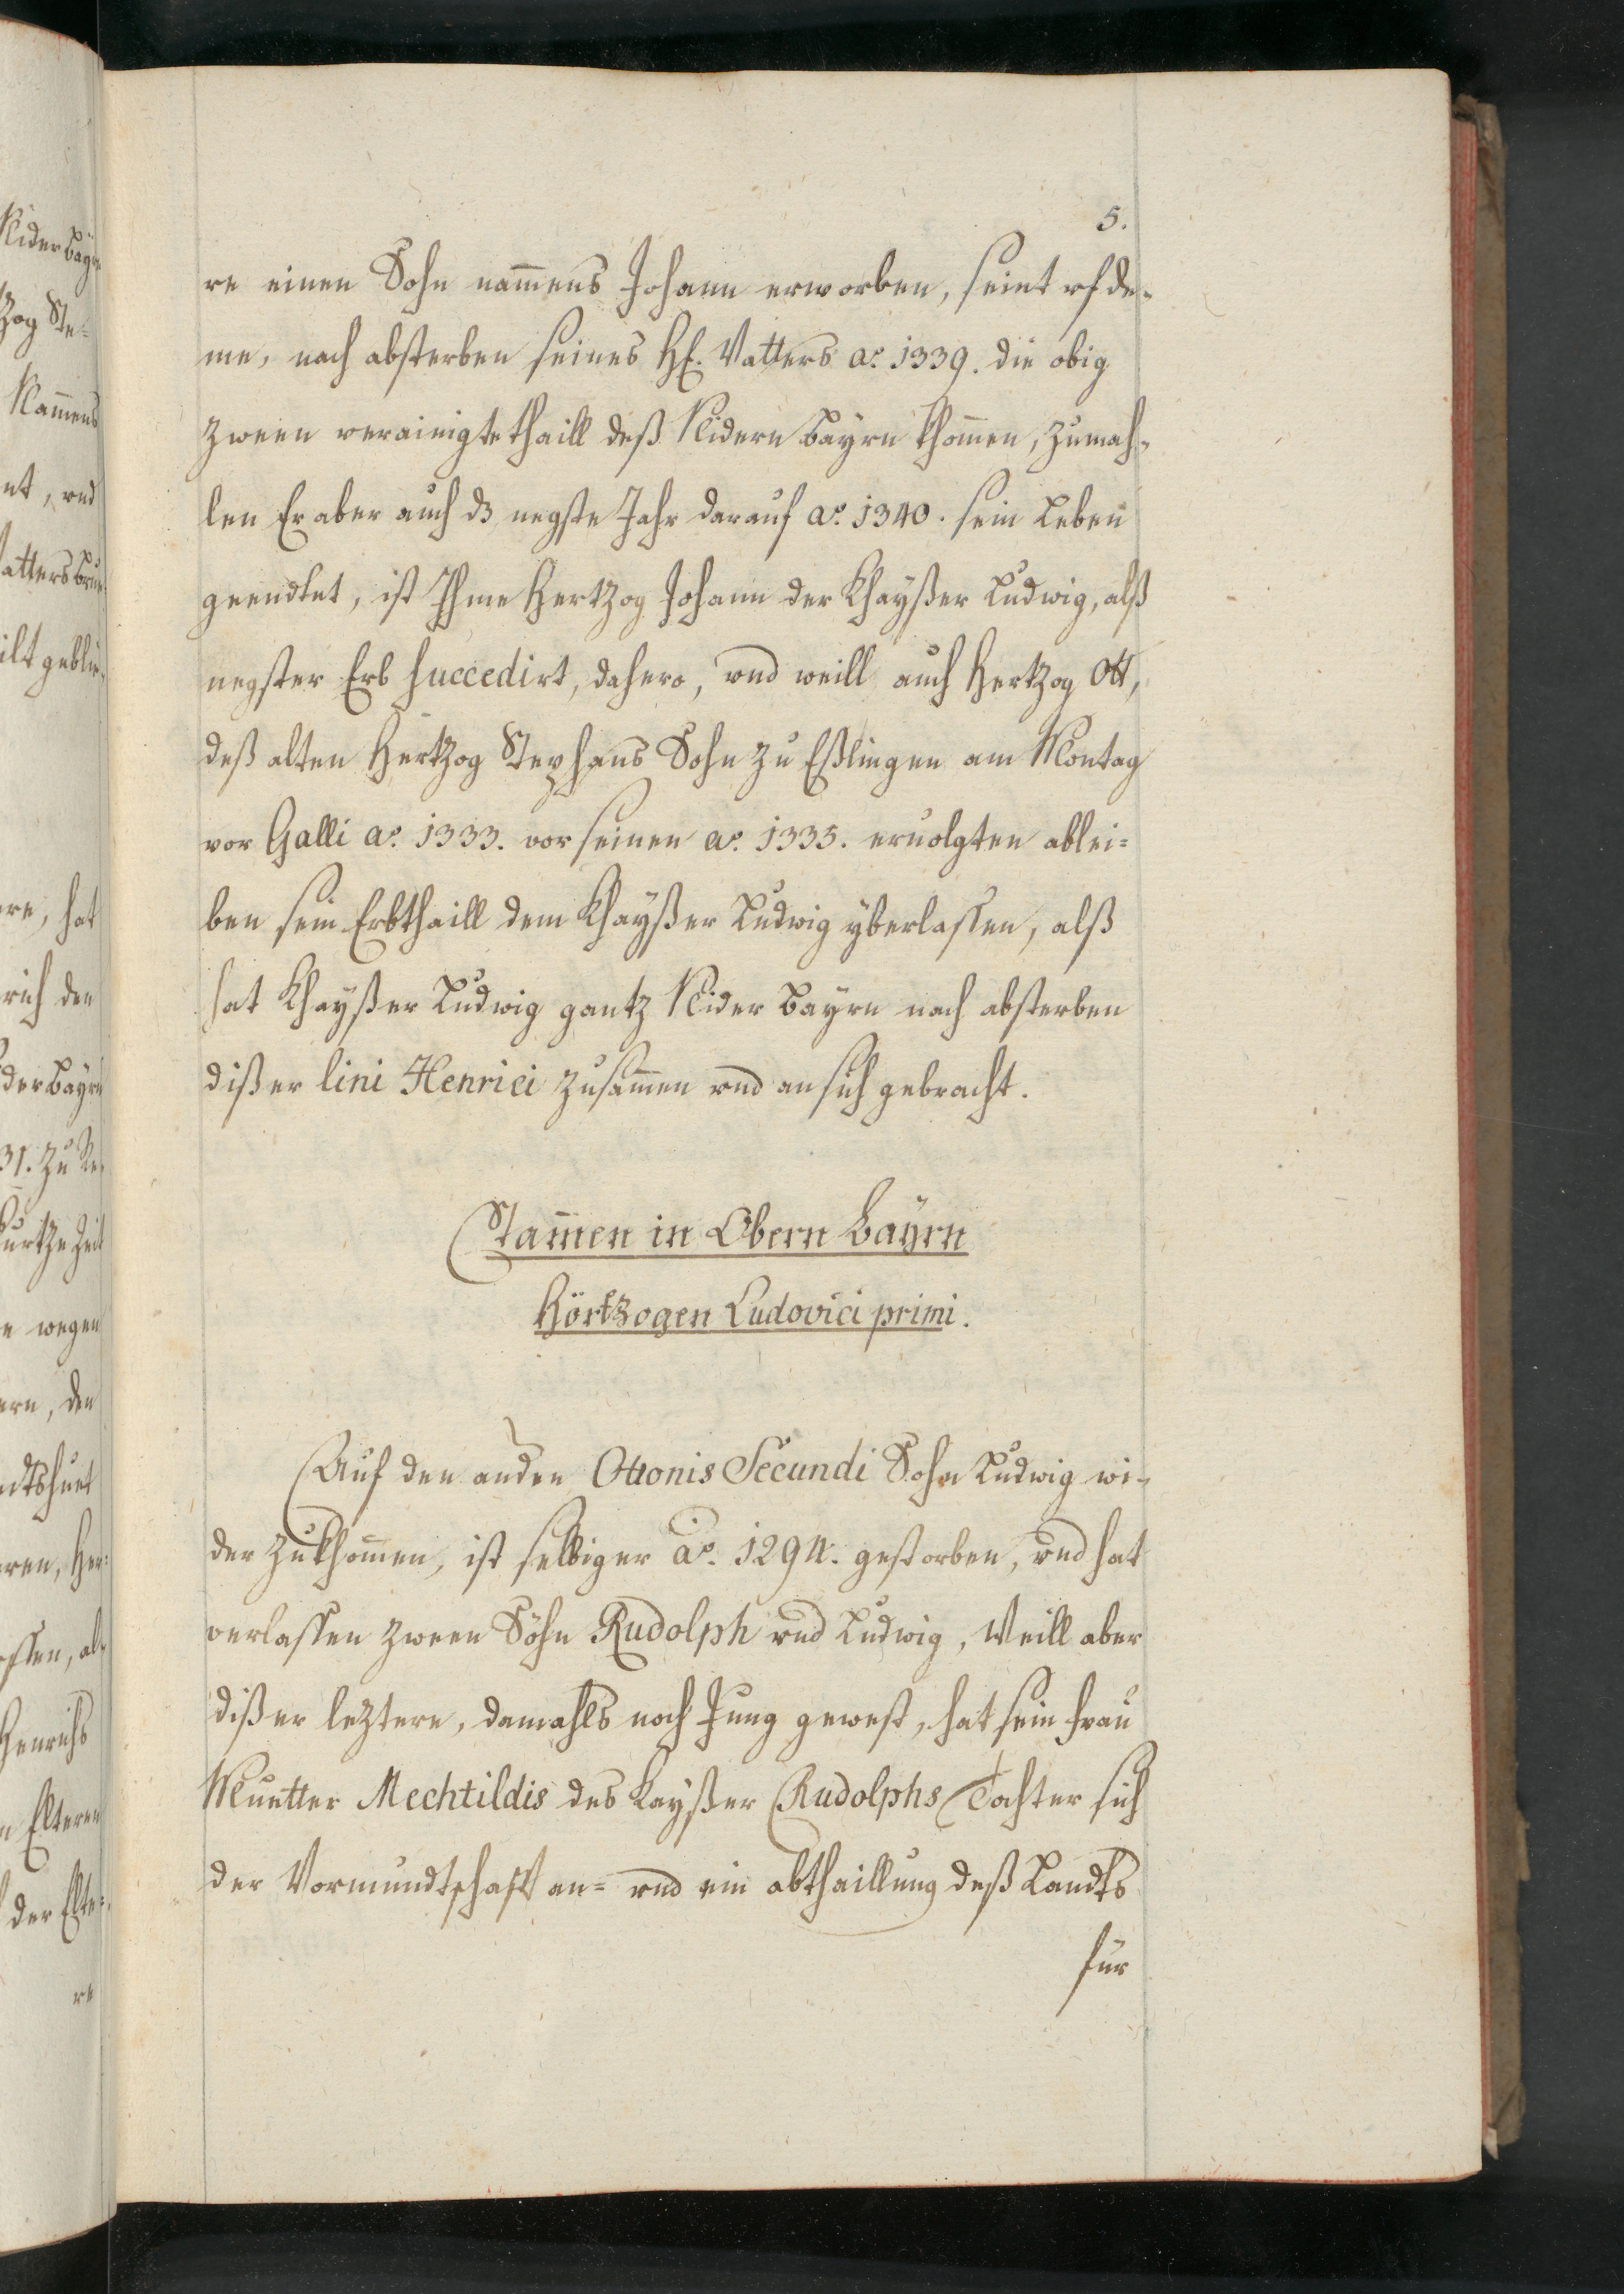 5.
re einen Sohn nam̄ens Johann erworben, seint vf de-
me, nach absterben seines H. Vatters aº. 1339. die obig
zween verainigte thaill deß Nidern Bayrn khom̄en, zumah-
len Er aber auch dz negste Jahr darauf aº. 1340. sein Leben
geendtet, ist Ihme Hertzog Johann der Khayßer Ludwig, alß
negster Erb succedirt, dahero, vnd weill auch Hertzog Ott,
deß alten Hertzog Stephans Sohn zu Eßlingen am Montag
vor Galli aº. 1333. vor seinen aº. 1335. eruolgten ablei=
ben sein Erbthaill dem Khayßer Ludwig yberlassen, alß
hat Khayßer Ludwig gantz Nider Bayrn nach absterben
dißer lini Henrici zusam̄en vnd an sich gebracht.
Stam̄en in Obern Bayrn
Hörtzogen Ludovici primi.
Auf den andern Ottonis Secundi Sohn Ludwig wi-
der zukhom̄en, ist selbiger aº. 1294. gestorben, vnd hat
verlassen zween Söhn Rudolph vnd Ludwig, Weill aber
dißer leztere, damahls noch Jung gewest, hat sein Frau
Muetter Mechtildis des Kayßer Rudolphs Tochter sich
der Vormundtschafft an= vnd ein abthaillung deß Landts
für
Nider Bayrn
zog Ste=
Nam̄ens
et, vnd
ere, hat
rich den
der Bayrn
31. zu Re-
kurtze Zeit
e wegen
ern, den
ndtshuet
ren, Her=
ssen, al-
Henrichs
n Eltern
der Elte=
re